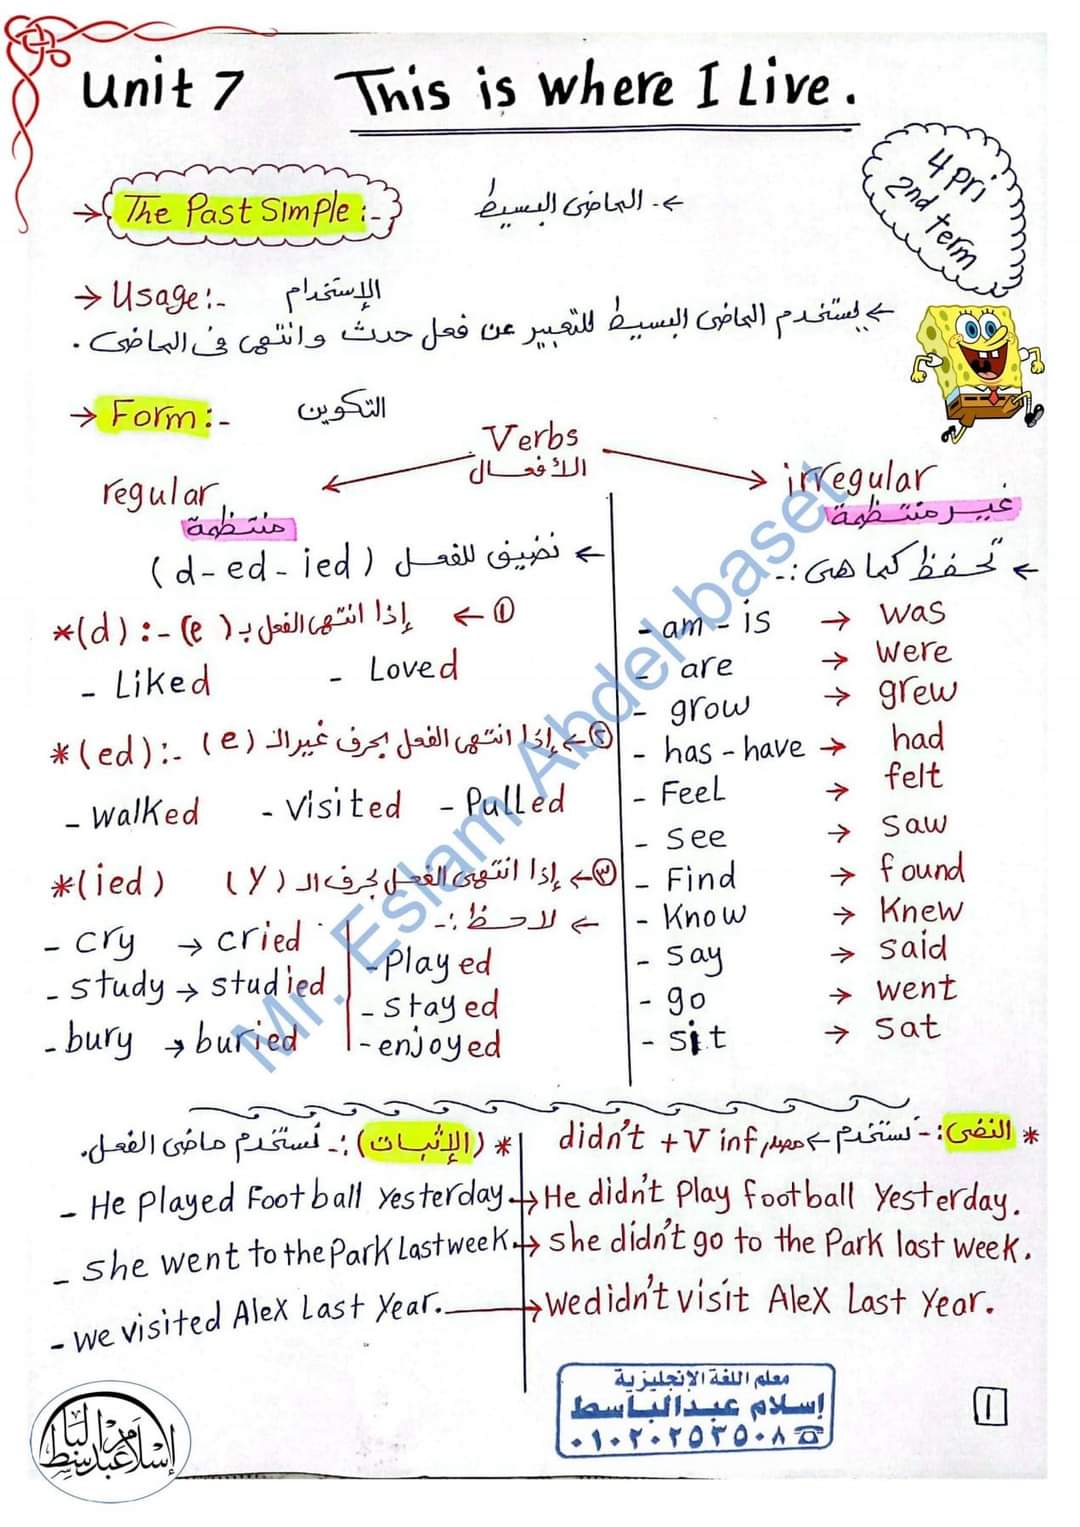 Unit 7 This is where I Live.
4 pri
2nd term
→ The Past Simple :- ←- الماضى البسيط
→ Usage:- الإستخدام
← يستخدم الماضى البسيط للتعبير عن فعل حدث وانتهى فى الماضى .
→ Form:- التكوين
Verbs
الأفعال
regular
منتظمة
← نضيف للفعل (d - ed - ied)
*(d) :- ① ← إذا انتهى الفعل بـ (e)
- Liked - Loved
*(ed):- ②← إذا انتهى الفعل بحرف غير الـ (e)
- walked - visited - Pulled
*(ied) ③← إذا انتهى الفعل بحرف الـ (y)
← لاحظ :-
- cry → cried
- study → studied
- bury → buried
- Played
- stayed
- enjoyed
irregular
غير منتظمة
← تحفظ كما هى :-
- am - is → was
- are → were
- grow → grew
- has - have → had
- Feel → felt
- see → saw
- Find → found
- Know → Knew
- say → said
- go → went
- sit → sat
* (الإثبات) :- نستخدم ماضى الفعل.
* النفى :- نستخدم ← didn't + V inf مصدر
- He Played Football Yesterday. → He didn't Play football Yesterday.
- she went to the Park Last week. → she didn't go to the Park last week.
- we visited Alex Last Year. → we didn't visit Alex Last Year.
Mr. Eslam Abdel-baset
معلم اللغة الإنجليزية
إسلام عبدالباسط
☎ ٠١٠٢٠٢٥٣٥٠٨
١